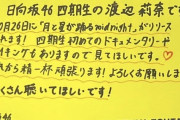 日向坂46 四期生の 渡辺 莉奈です
0月26日に「月と星が踊るmidnight」がリリース
れます! 四期生 初めての ドキュメンタリーや
イキングもありますので 見てほしいです。♡
から精一杯 頑張ります! よろしくお願いしま
くさん 聴いてほしいです!